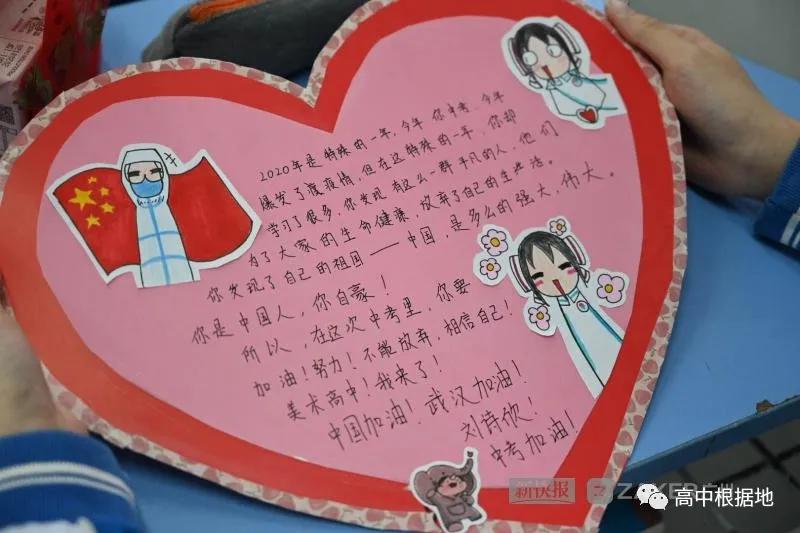 2020年是特殊的一年,今年你中考,今年
爆发了疫情,但在这特殊的一年,你却
学习了很多,你发现有这么一群平凡的人,他们
为了大家的生命健康,放弃了自己的生活。
你发现了自己的祖国——中国,是多么的强大,伟大。
你是中国人,你自豪!
所以,在这次中考里,你要
加油!努力!不能放弃,相信自己!
美术高中!我来了!
中国加油!武汉加油!
刘诗欣!
中考加油!
新快报
高中根据地